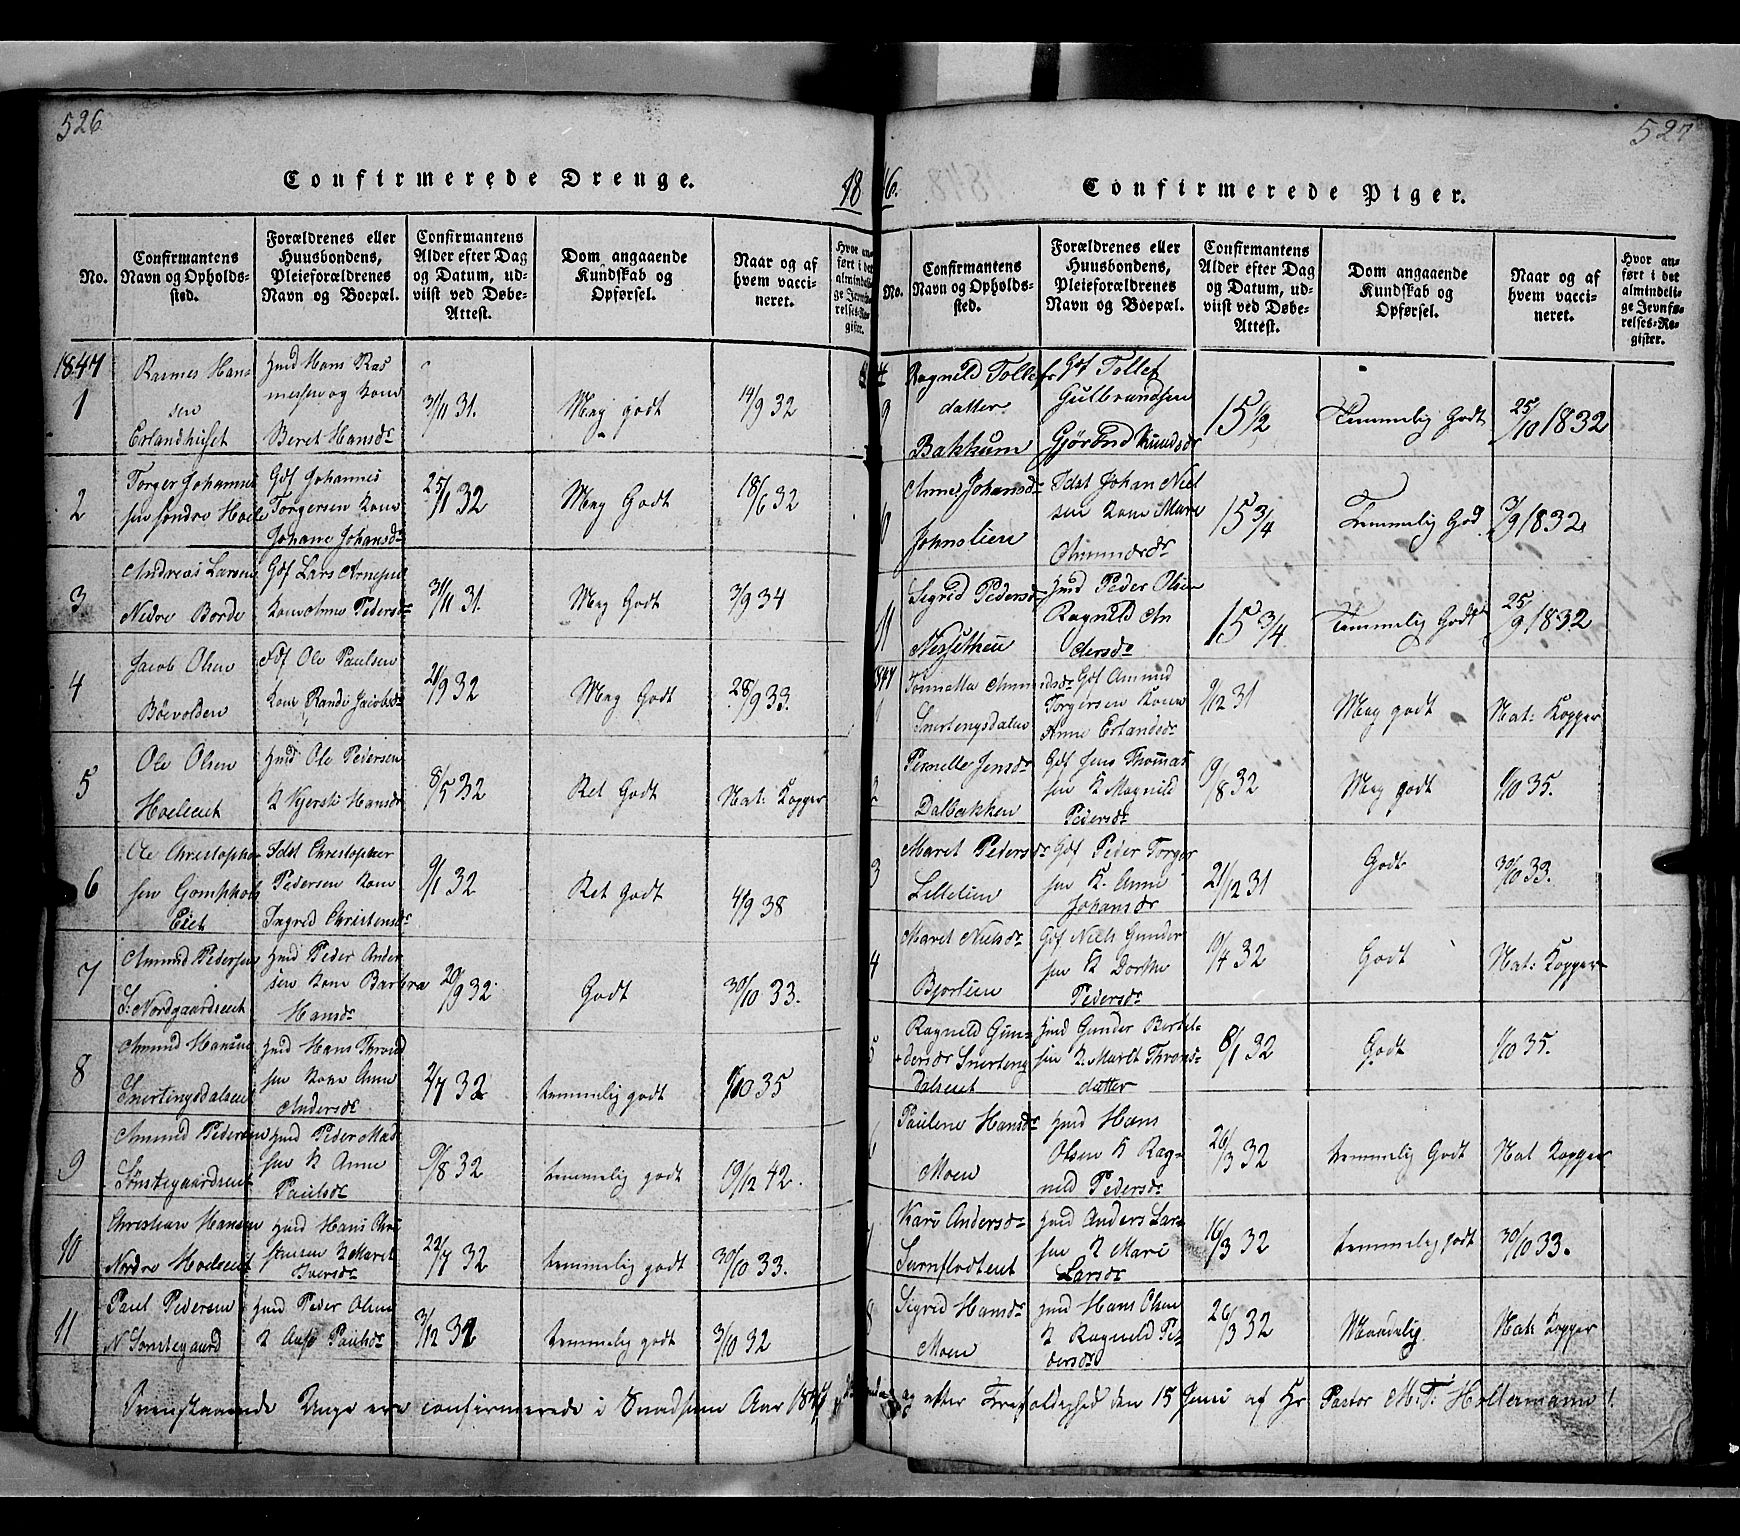 526
Confirmerede Drenge.
18
No.
Confirmantens
Navn og Opholds-
sted.
Forældrenes eller
Huusbondens,
Pleieforældrenes
Navn og Boepæl.
Confirmantens
Alder efter Dag
og Datum, ud-
viist ved Døbe-
Attest.
Dom angaaende
Kundskab og
Opførsel.
Naar og af
hvem vacci-
neret.
Hvor an-
ført i det
almindeli-
ge Jevnfø-
relses-Re-
gister.
1847
1
Rasmes Han-
sen
Erlandhuset
Hmd Hans Ras
messen og Kone
Beret Hansdr
31/11 31.
Meg godt
14/9 32
2
Torger Johannes
sen søndre Hoele
Gdf Johannes
Torgersen Kone
Johane Johansdr
25/1 32
Meg Godt
18/6 32
3
Andreas Larsen
Nedre Borde
Gdf Lars Arnesen
Kone Anne Pedersdr
31/11 31.
Meg Godt
3/9 34
4
Jacob Olsen
Bøevolden
Fdf Ole Paulsen
Kone Rande Jacobsdr
21/9 32
Meg Godt
28/9 33.
5
Ole Olsen
Hoeleeiet
Hmd Ole Pedersen
K Kjersti Hansdr
8/5 32
Ret Godt
Nat: Kopper
6
Ole Christopher
sen
Eiet
Idst Christopher
Pedersen Kone
Ingrid Christensdr
9/1 32
Ret Godt
4/9 38
7
Amund Pedersen
S: Nordgaardseiet
Hmd Peder Ander
sen Kone Barbra
Hansdr
20/9 32
Godt
30/10 33.
8
Amund Hansen
Snertingsdalseiet
Hmd Hans Thrond
sen Kone Anne
Andersdr
2/7 32
temmelig godt
1/10 35
9
Amund Pedersen
Sønstegaardseiet
Hmd Peder Mad
sen K Anne
Paulsdr
9/8 32
temmelig godt
19/12 42.
10
Christian Hansen
Nordre Hoelseiet
Hmd Hans Chri
stensen K Maret
Iversdr
22/7 32
temmelig godt
30/10 33.
11
Paul Pedersen
N Sønstegaard
Hmd Peder Olsen
K Aase Paulsdr
3/12 31
temmelig godt
3/10 32
527
Confirmerede Piger.
46.
No.
Confirmantens
Navn og Opholds-
sted.
Forældrenes eller
Huusbondens,
Pleieforældrenes
Navn og Boepæl.
Confirmantens
Alder efter Dag
og Datum, ud-
viist ved Døbe-
Attest.
Dom angaaende
Kundskab og
Opførsel.
Naar og af
hvem vacci-
neret.
Hvor an-
ført i det
almindeli-
ge Jevnfø-
relses-Re-
gister.
9
Ragneld Tollefs
datter
Bakkum
Gdf Tollef
Gulbrandsen
Gjørend Knudsdr
15 1/2
Temmelig Godt
25/10 1832
Anne Johansdr
Johnslien
Idst Johan Niel
sen Kone Mare
Amundsdr
15 3/4
Temmelig God
7/9 1832
11
Sigrid Pedersdr
Hmd Peder Olsen
Ragneld An
dersdr
15 3/4
Temmelig Godt
25/9 1832
1847
1
Tonnetta Amundsdr
Snertengsdalen
Gdf Amund
Torgersen Kone
Anne Erlandsdr
9/12 31
Meg godt
Nat: Kopper
2
Pernelle Jensdr
Dalbakken
Gdf Jens Thomas
sen K Magnild
Pedersdr
9/8 32
Meg godt
1/10 35.
3
Maret Pedersdr
Lillelien
Gdf Peder Torger
sen K. Anne
Johansdr
21/12 31
Godt
30/10 33.
4
Maret Nielsdr
Bjorlien
Gdf Niels Gunder
sen K Dorthe
Pedersdr
19/4 32
Godt
Nat: Kopper
5
Ragneld Gun-
dersdr Snerteng
dalseiet
Hmd Gunder Bertel-
sen K. Maret Thrans-
datter
8/1 32
Godt
1/10 35.
6
Paulene Hansdr
Moen
Hmd Hans
Olsen K Rag-
neld Pedersdr
26/3 32
temmelig Godt
Nat Kopper
7
Kari Andersdr
Hmd Anders Lar
sen K Mari
Larsdr
16/3 32
temmelig godt
30/10 33.
8
Sigrid Hansdr
Moen
Hmd Hans Olsen
K Ragneld Pe-
dersdr
26/3 32
Maadelig
Nat Kopper
Ovenstaaende Unge ere confirmerede i Snadsens Aar 1847 og efter den 15 Juni af Hr Pastor M. T. Holtermann